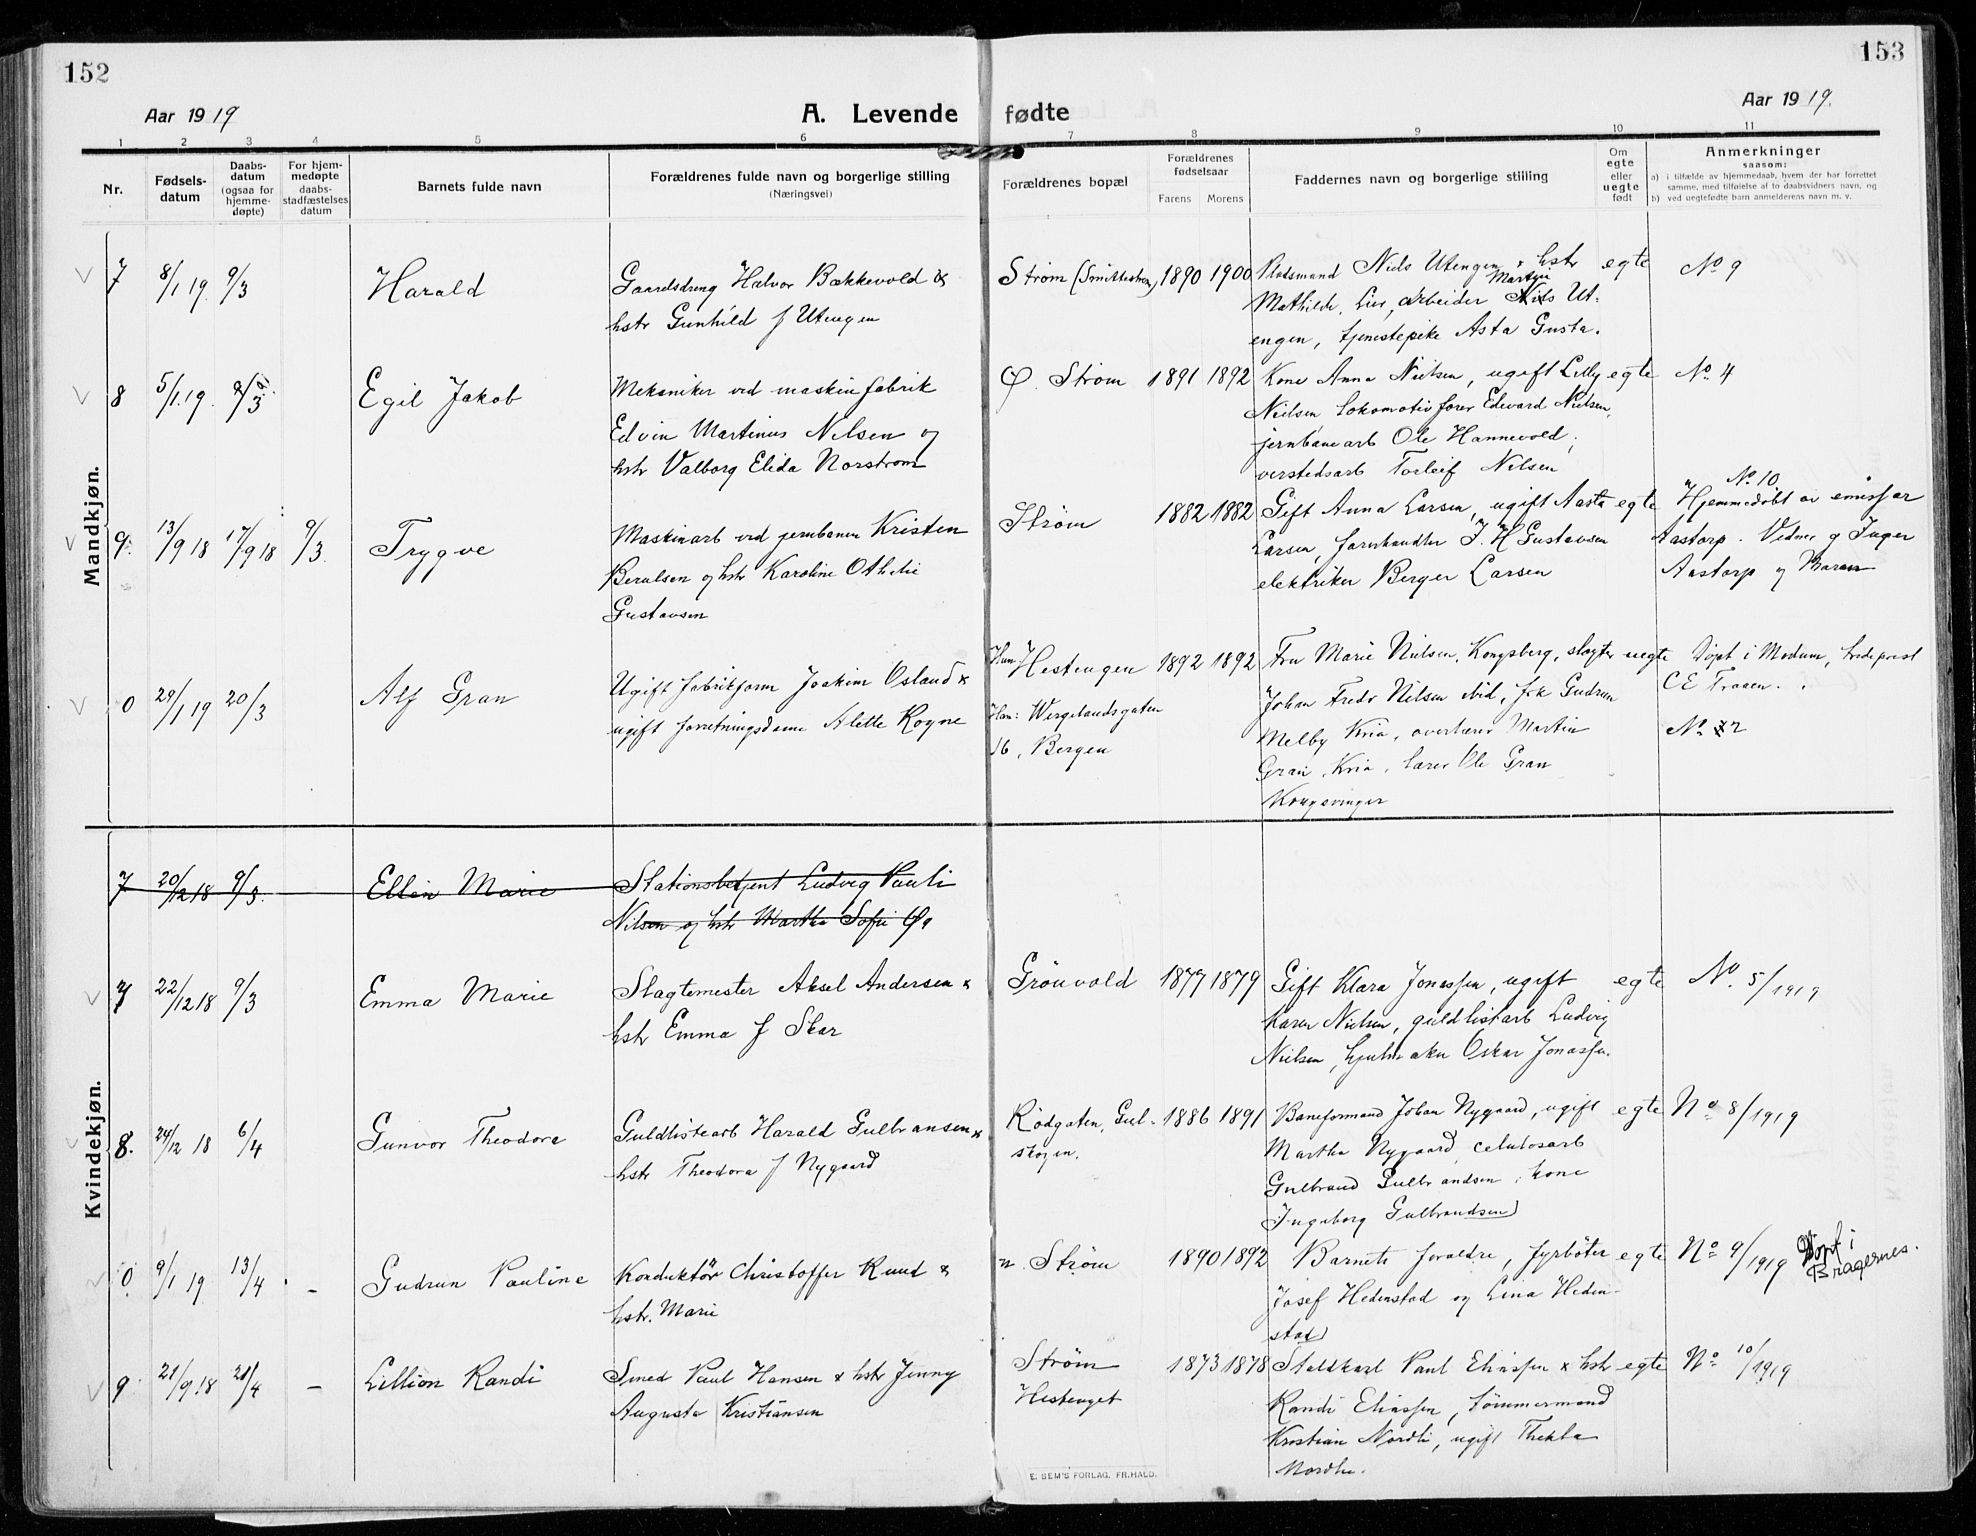 152
153
Aar 1919
A. Levende fødte
Aar 1919.
1 2 3 4 5 6 7 8 9 10 11
Nr.
Fødsels-
datum
Daabs-
datum
(ogsaa for
hjemme-
døpte)
For hjem-
medøpte
daabs-
stadfæstelses
datum
Barnets fulde navn
Forældrenes fulde navn og borgerlige stilling
(Næringsvei)
Forældrenes bopæl
Forældrenes
fødselsaar
Farens Morens
Faddernes navn og borgerlige stilling
Om
egte
eller
uegte
født
Anmerkninger
saasom:
a) i tilfælde av hjemmedaab, hvem der har forrettet
samme, med tilføielse af to daabsvidners navn, og
b) ved uegtefødte barn anmelderens navn m. v.
Mandkjøn.
7 8/1 19. 9/3 Harald
Gaardsdreng Halvor Bækkevold &
hstr Gunhild f Utengen
Strøm (Smittestrøm) 1890 1900
Pladsmand Niels Utengen & hstr egte No 9
Mathilde, Lier, arbeider Martin Ut-
engen, tjenestepike Asta Gusta.
8 5/1.19. 9/3 Egil Jakob
Mekaniker ved maskinfabrik
Edvin Martinus Nilsen og
hstr Valborg Elida Norstrøm
Ø. Strøm 1891 1892
Kone Anna Nielsen, ugift Lilly egte No. 4
Nielsen Lokomotivfører Edvard Nielsen,
jernbanearb Ole Hannevold,
verstedsarb Torleif Nilsen
9. 13/9 18 17/9 18 9/3. Trygve
Maskinarb ved jernbanen Kristen
Berulsen og hstr Karoline Othilie
Gustavsen
Strøm 1882 1882
Gift Anna Larsen, ugift Aasta egte
Larsen, farvehandler J. H Gustavsen
elektriker Berger Larsen
No. 10
Hjemmedøbt av emissær
Aastorp. Vidner g Inger
Aastorp og Maren
0 29/1 19 20/3 Alf Gran
Ugift fabrikform Joakim Osland &
ugift forretningsdame Alette Rogne
Hun: Hestengen 1892 1892
Han: Wergelandsgaten
16, Bergen
Fru Marie Nielsen, Kongsberg, slagter uegte
Johan Fredr Nilsen ibid, frk Gudrun
Melby Kria, overlærer Martin
Gran, Kria, lærer Ole Gran
Kongsvinger
Døpt i Modum,
CE Traaen.
No 2
Kvindekjøn.
7 20/12 18 9/3. Ellen Marie
Stationsbetjent Ludvig Pauli
Nilsen og hstr Martha Sofie Øa
7 22/12 18 9/3 Emma Marie
Slagtemester Aksel Andersen &
hstr Emma f Skar
Grönvold 1877 1879
Gift Klara Jonassen, ugift egte No. 5/1919
Karen Nielsen, guldlistarb Ludvig
Nielsen, hjulmaker Oskar Jonassen.
8. 24/12 18 6/4 Gunvor Theodora
Guldlistearb Harald Gulbransen &
hstr Theodora f Nygaard
Rödgaten, Gul- 1886 1891
skogen.
Baneformand Johan Nygaard, ugift egte No 8/1919
Martha Nygaard, celulosarb
Gulbrand Gulbrandsen, kone
Ingeborg Gulbrandsen
0 9/1 19. 13/4 - Gudrun Pauline
Konduktör Christoffer Ruud &
hstr. Marie
n. Strøm 1890 1892
Barnets foraldre, fyrböter egte No 9/1919 Døpt i
Bragernes.
Josef Hedenstad og Lina Heden-
stad
9 21/9.18 21/4 - Lillion Randi
Smed Paul Hansen & hstr Jenny
Augusta Kristiansen
Strøm 1873 1878
Hestenget
Staldkarl Paul Eliassen & hstr egte No 10/1919
Randi Eliassen, tømmermand
Kristian Nordli, ugift Thekla
Nordlie.
E. SEM'S FORLAG. FR.HALD.